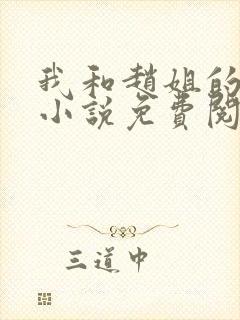 我和趙姐的
小說免費閱
三道中